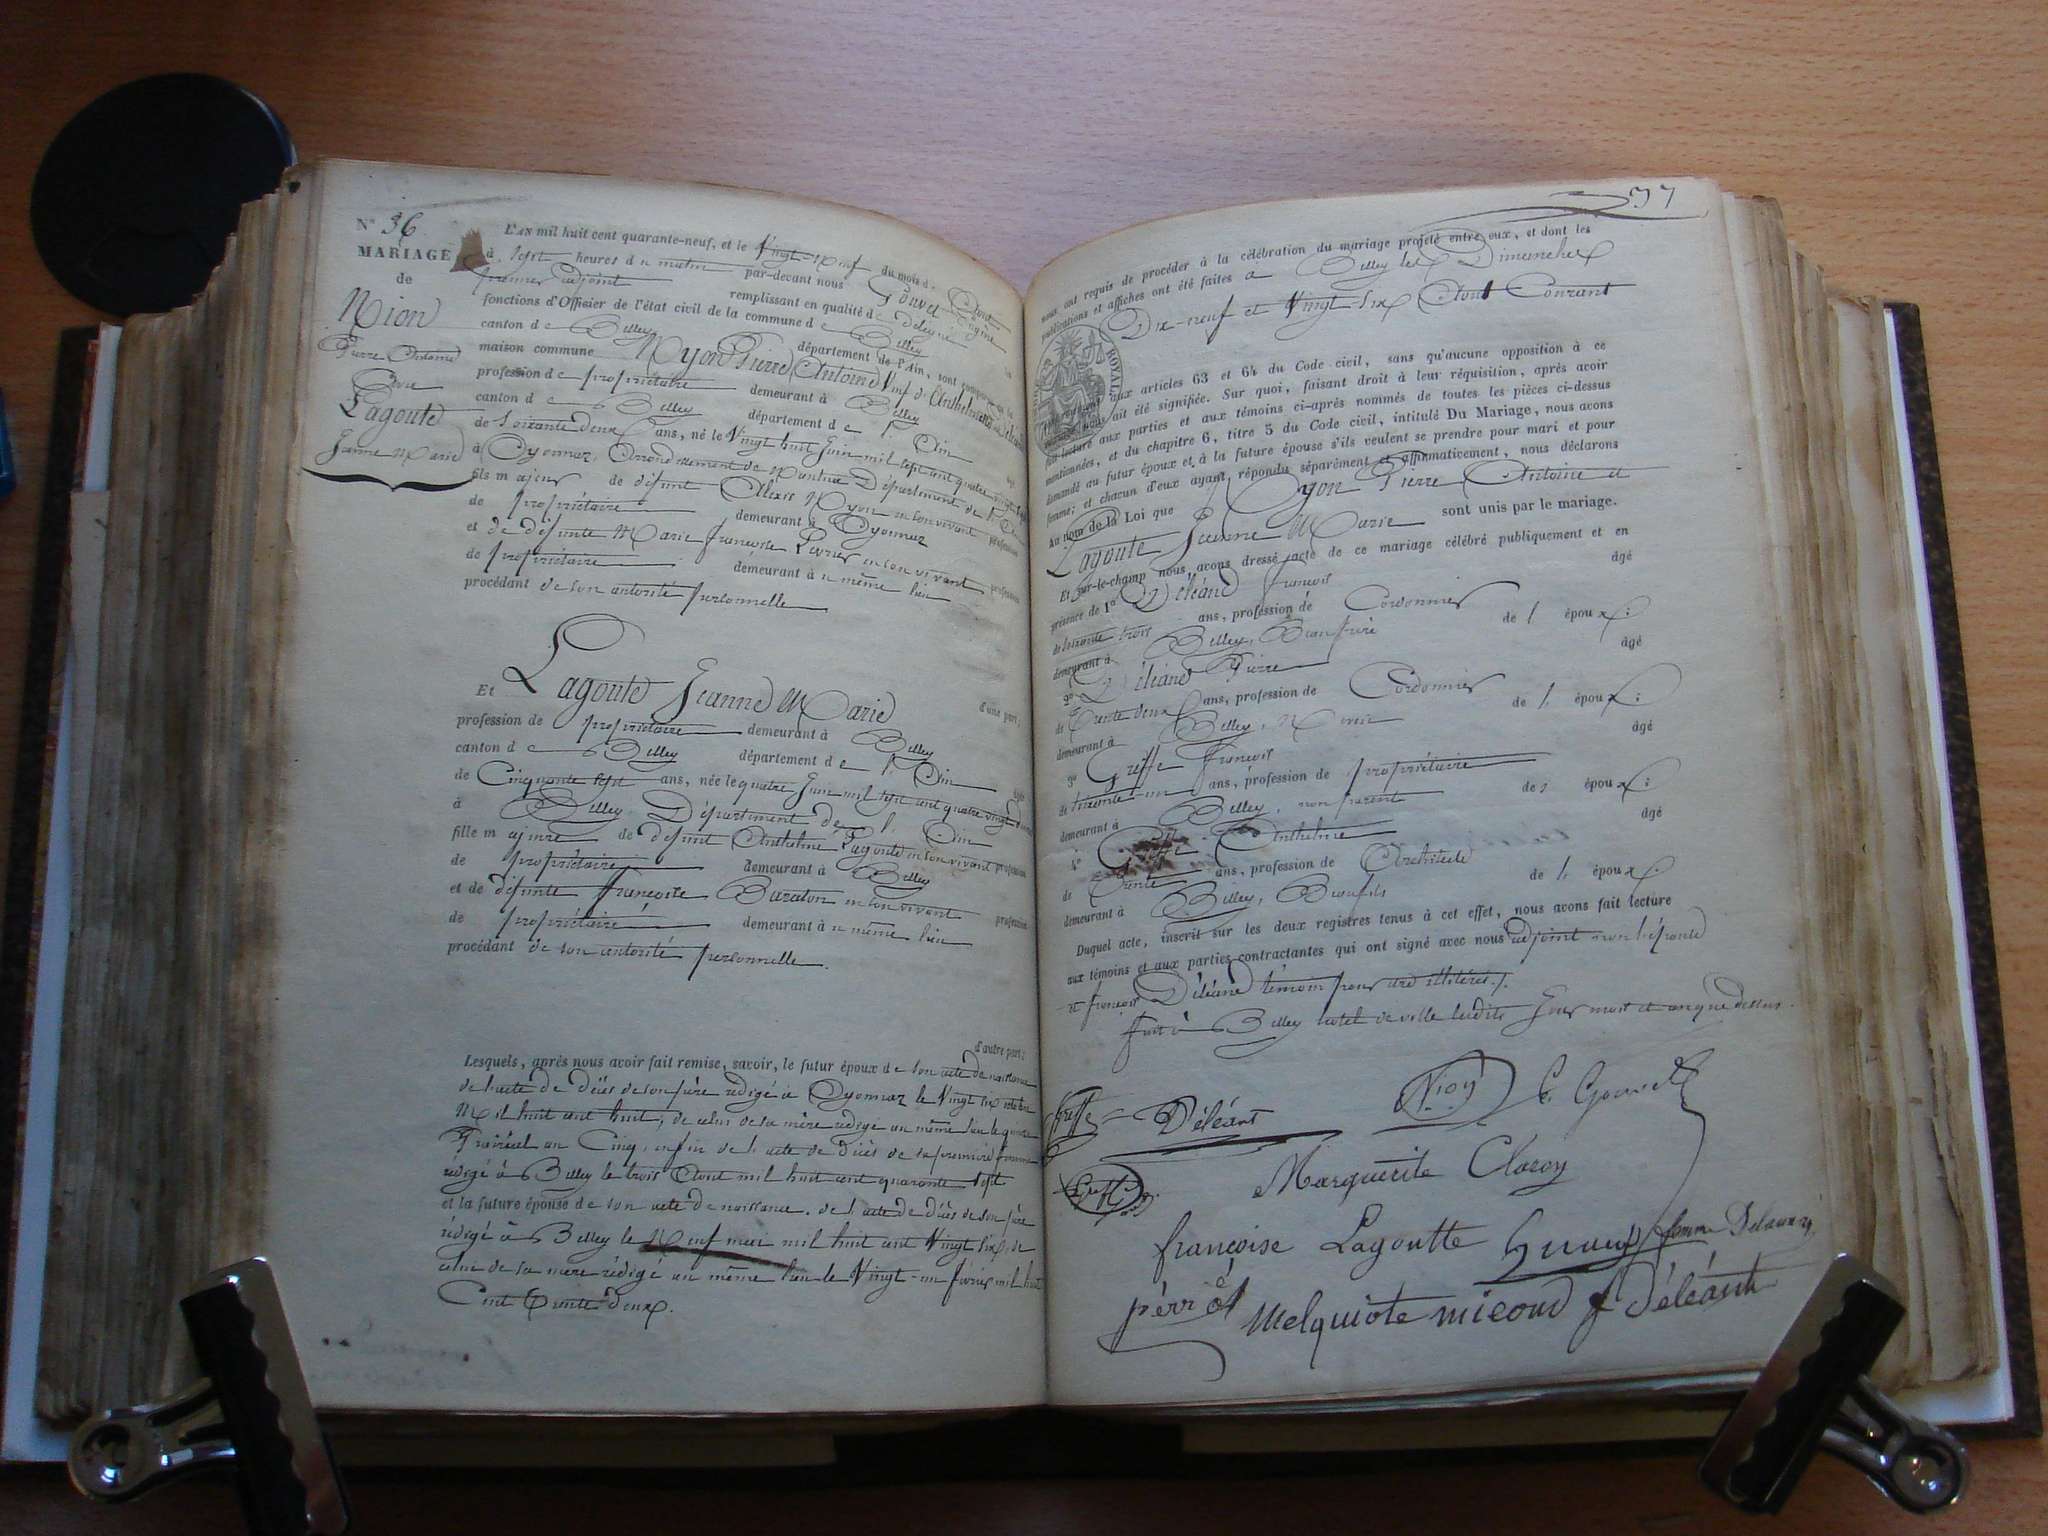 N° 36
MARIAGE
de
Nion
Pierre Antoine
Avec
Lagoute
Jeanne Marie
L'AN mil huit cent quarante-neuf, et le Vingt-neuf du mois d'Aout
à sept heures du matin par-devant nous Gouvet Eugène
premier adjoint remplissant en qualité de délégué
fonctions d'Officier de l'état civil de la commune de Belley
canton de Belley département de l'Ain, sont
maison commune Nyon Pierre Antoine Vf d'Anthelmette Déléand
profession de propriétaire demeurant à Belley
canton de Belley département de l'Ain
de soixante deux ans, né le Vingt huit Juin mil sept cent quatre vingt
à Oyonnax, Arrondissement de Nantua Département de l'Ain
fils majeur de défunt Alexis Nyon en son vivant profession
de propriétaire demeurant à Oyonnax
et de défunte Marie françoise en son vivant profession
de propriétaire demeurant au même lieu
procédant de son autorité personnelle
d'une part,
Et Lagoute Jeanne Marie
profession de propriétaire demeurant à Belley
canton de Belley département de l'Ain
de Cinquante sept ans, née le quatre Juin mil sept cent quatre vingt
à Belley, Département de l'Ain
fille majeure de défunt Anthelme Lagoute en son vivant profession
de propriétaire demeurant à Belley
et de défunte françoise Baraton en son vivant profession
de propriétaire demeurant au même lieu
procédant de son autorité personnelle.
d'autre part;
Lesquels, après nous avoir fait remise, savoir, le futur époux de son acte de naissance
de l'acte de décès de son père rédigé à Oyonnax le Vingt six octobre
Mil huit cent huit; de celui de sa mère rédigé au même lieu le quinze
Prairéal an Cinq, enfin de l'acte de décès de sa première femme
rédigé à Belley le trois Aout mil huit cent quarante sept
et la future épouse de son acte de naissance. de l'acte de décès de son père
rédigé à Belley le Neuf mai mil huit cent Vingt six, de
celui de sa mère rédigé au même lieu le Vingt-un février mil huit
Cent trente deux.
37
nous ont requis de procéder à la célébration du mariage projeté entre eux, et dont les
publications et affiches ont été faites à Belley les Dimanches
Dix-neuf et Vingt-six Aout Courant
ROYAL
aux articles 63 et 64 du Code civil, sans qu'aucune opposition à ce
ait été signifiée. Sur quoi, faisant droit à leur réquisition, après avoir
fait lecture aux parties et aux témoins ci-après nommés de toutes les pièces ci-dessus
mentionnées, et du chapitre 6, titre 5 du Code civil, intitulé Du Mariage, nous avons
demandé au futur époux et à la future épouse s'ils veulent se prendre pour mari et pour
femme; et chacun d'eux ayant répondu séparément et affirmativement, nous déclarons
Au nom de la Loi que Nyon Pierre Antoine et
Lagoute Jeanne Marie sont unis par le mariage.
Et sur-le-champ nous avons dressé acte de ce mariage célébré publiquement et en
présence de 1° Déléand françois âgé
de soixante trois ans, profession de Cordonnier
demeurant à Belley, Beaufrère de l'époux:
2° Déléand Pierre âgé
de Trente deux ans, profession de Cordonnier
demeurant à Belley, Neveu de l'époux:
3° Greffe françois âgé
de soixante-un ans, profession de propriétaire
demeurant à Belley, non parent des époux:
4° Greffe Anthelme âgé
de Trente ans, profession de Architecte
demeurant à Belley, Beaufils de l'époux.
Duquel acte, inscrit sur les deux registres tenus à cet effet, nous avons fait lecture
aux témoins et aux parties contractantes qui ont signé avec nous adjoint non l'épouse
et françois Déléand témoin pour être illitérés./.
fait à Belley hotel de ville lesdits Jour mois et an que dessus.
Greffe Déléant Nion E. Gouvet
Greffe Marguerite Claroy
françoise Lagoutte femme
perrot Melquiote micoud f Déléant